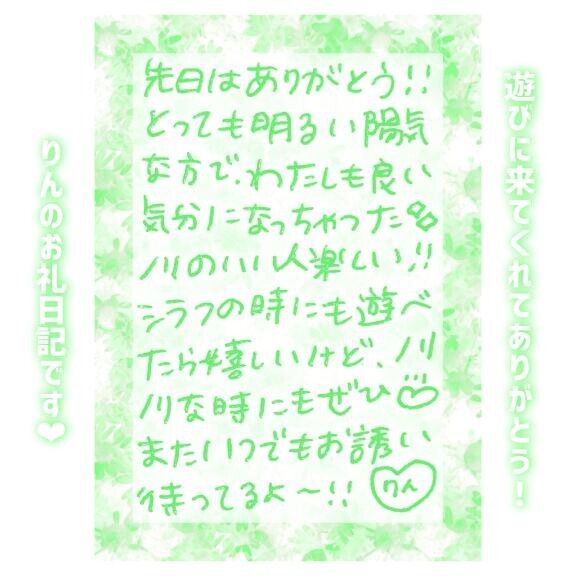 遊びに来てくれてありがとう！
先日はありがとう!!
とっても明るい陽気
な方で、わたしも良い
気分になっちゃった♪
ノリのいい人楽しい!!
シラフの時にも遊べ
たら嬉しいけど、ノリ
ノリな時にもぜひ
またいつでもお誘い
待ってるよ〜!!
りん
りんのお礼日記です♥